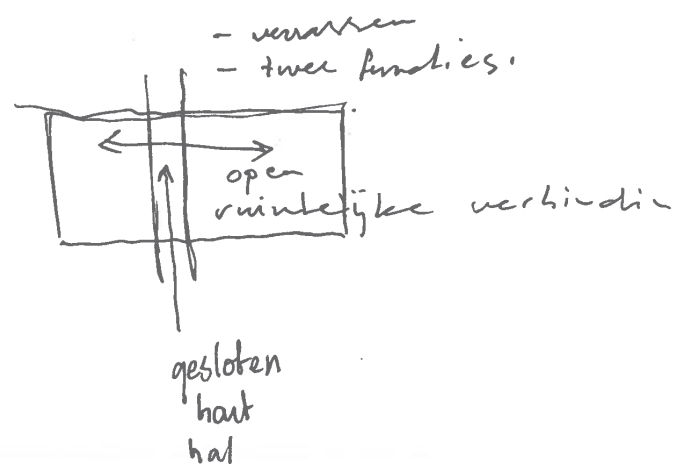 - verrassen
- twee functies.
open
ruimtelijke verbindin
gesloten
hout
hal